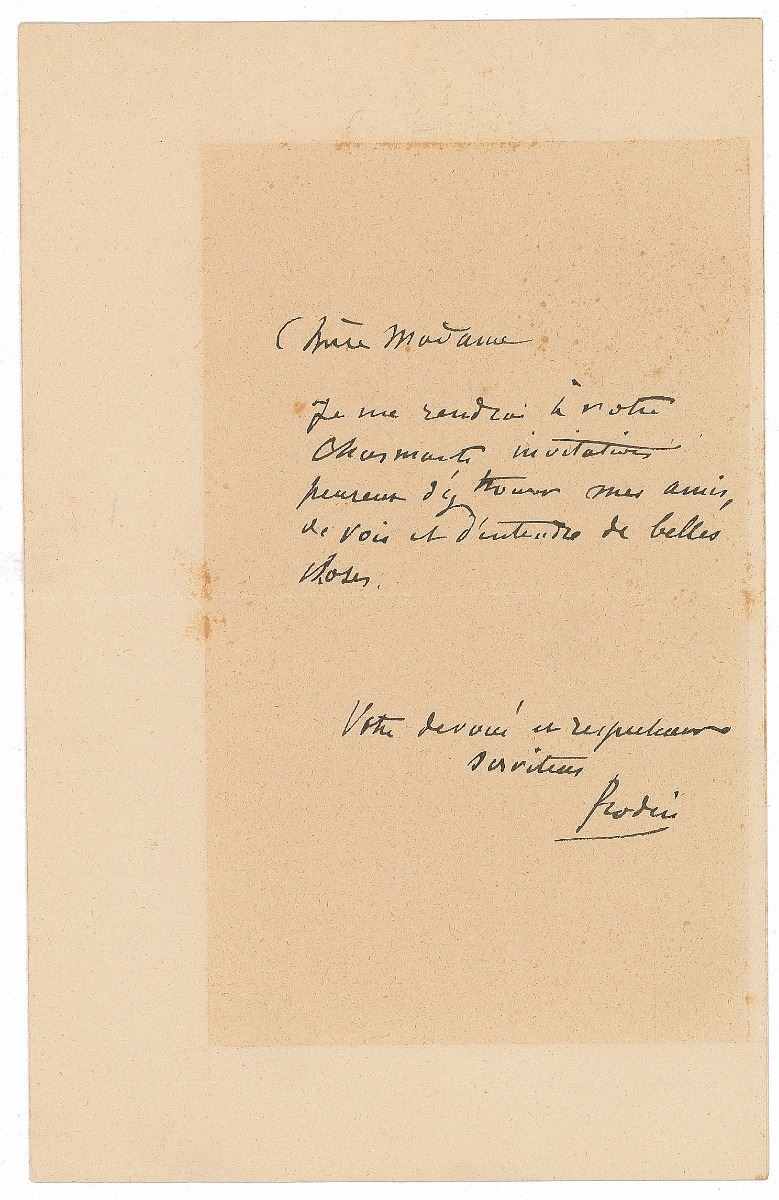 Chère Madame
Je me rendrai à votre
Charmante invitation
heureux d'y trouver mes amis,
de voir et d'entendre de belles
choses.
Votre dévoué et respectueux
serviteur
Rodin